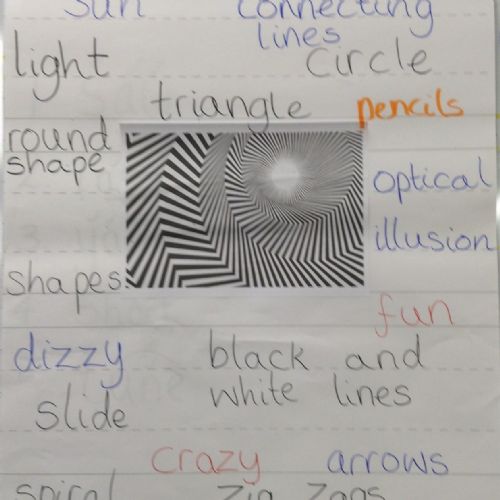 sun connecting
lines
light circle
triangle pencils
round
shape
optical
illusion
shapes
fun
dizzy black and
white lines
slide
crazy arrows
spiral Zig Zags